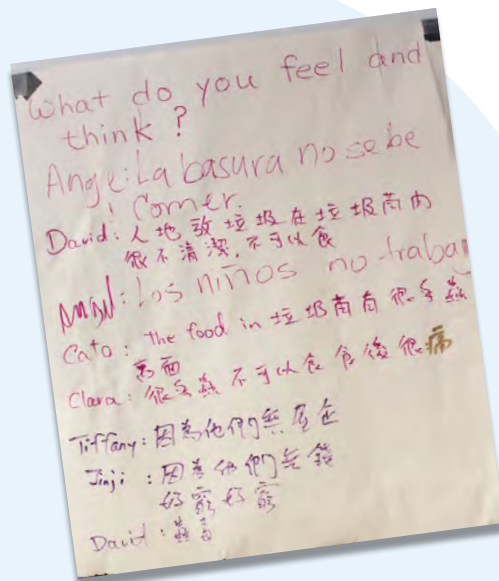 What do you feel and
think ?
Angel: La basura no se be
! Comer.
David: 人地放垃圾在垃圾筒內
很不清潔,不可以食
Angel: Los niños no trabaj
Cato: the food in 垃圾筒有很多蟲
裏面
Clara: 很多蟲不可以食 食後很痛
Tiffany: 因為他們無屋企
Jinji : 因為他們無錢
好窮好窮
David :